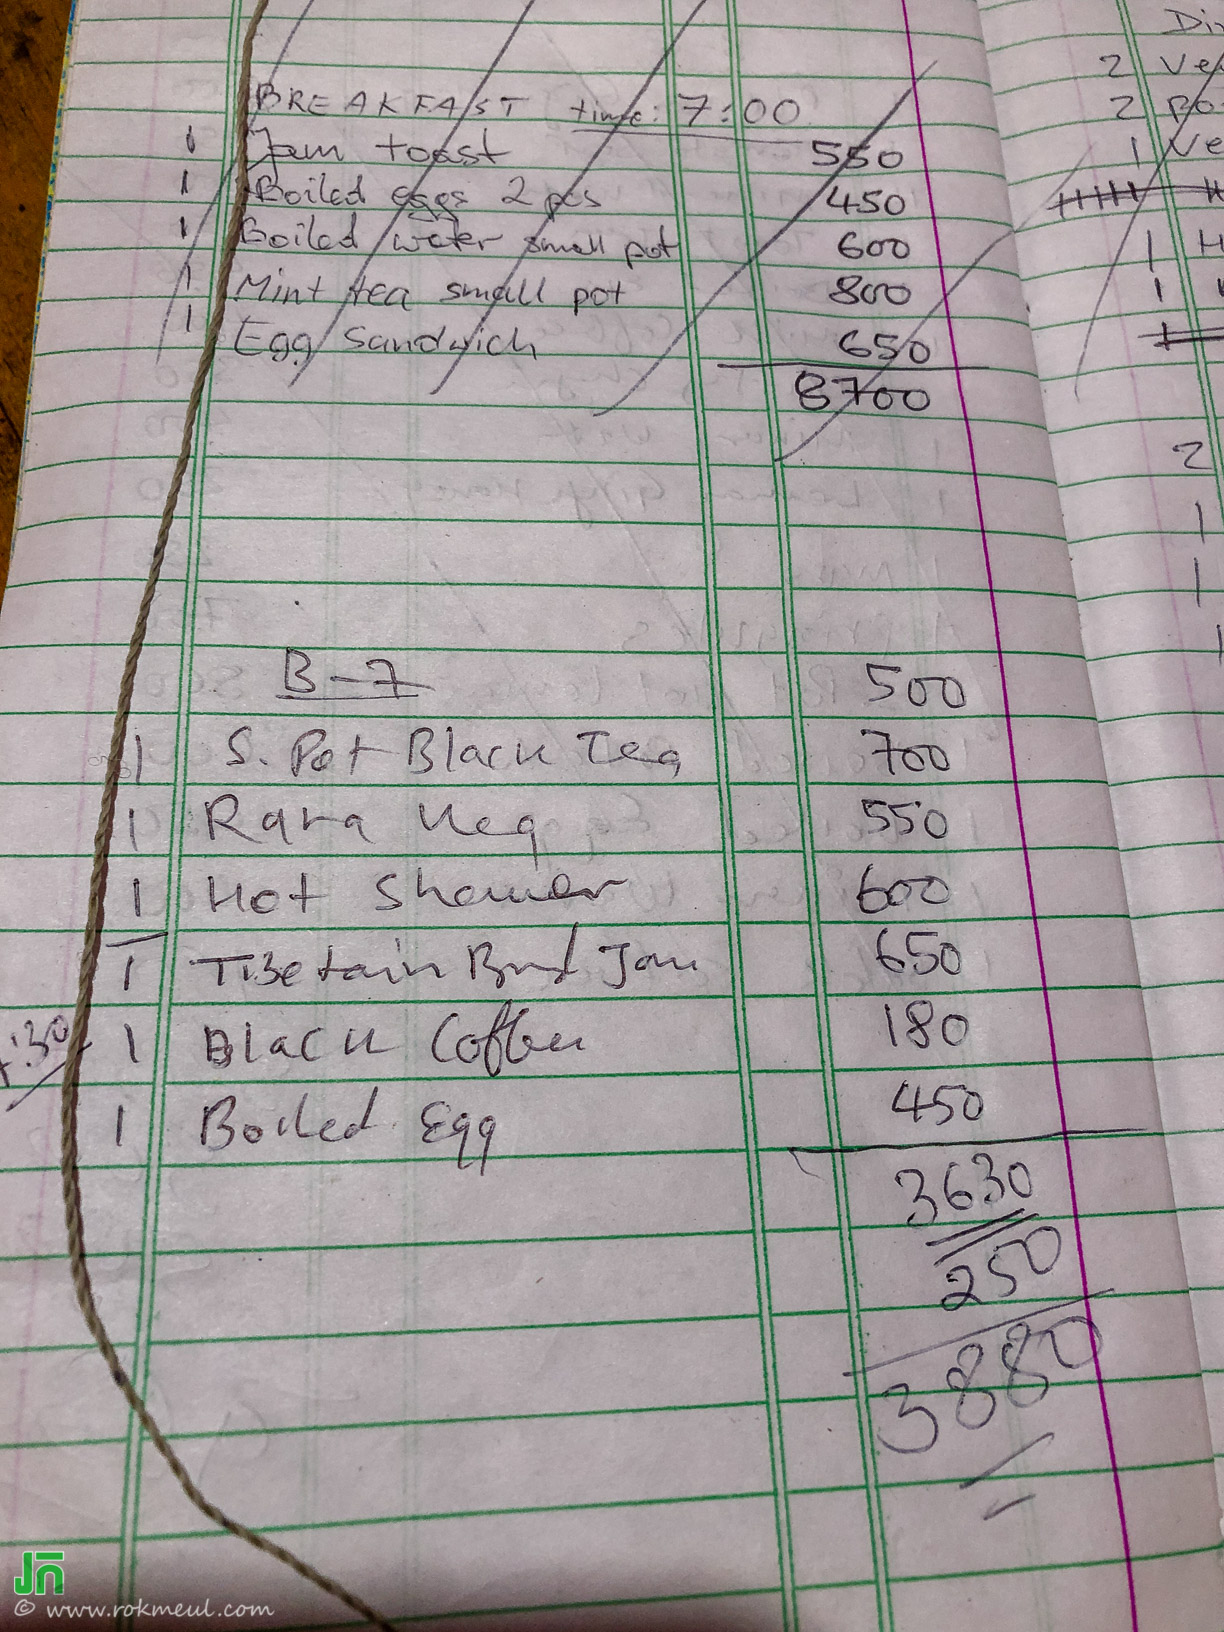 BREAKFAST time: 7:00
1 Jam toast 550
1 Boiled eggs 2 pcs 450
1 Boiled water small pot 600
1 Mint tea small pot 800
1 Egg Sandwich 650
8700
B-7 500
1 S. Pot Black Tea 700
1 Rara Veg 550
1 Hot Shower 600
1 Tibetain Brd Jam 650
1 Black Coffee 180
1 Boiled Egg 450
3630
250
3880
2
2
1 Ve
1 H
1
2
1
1
JN
© www.rokmeul.com